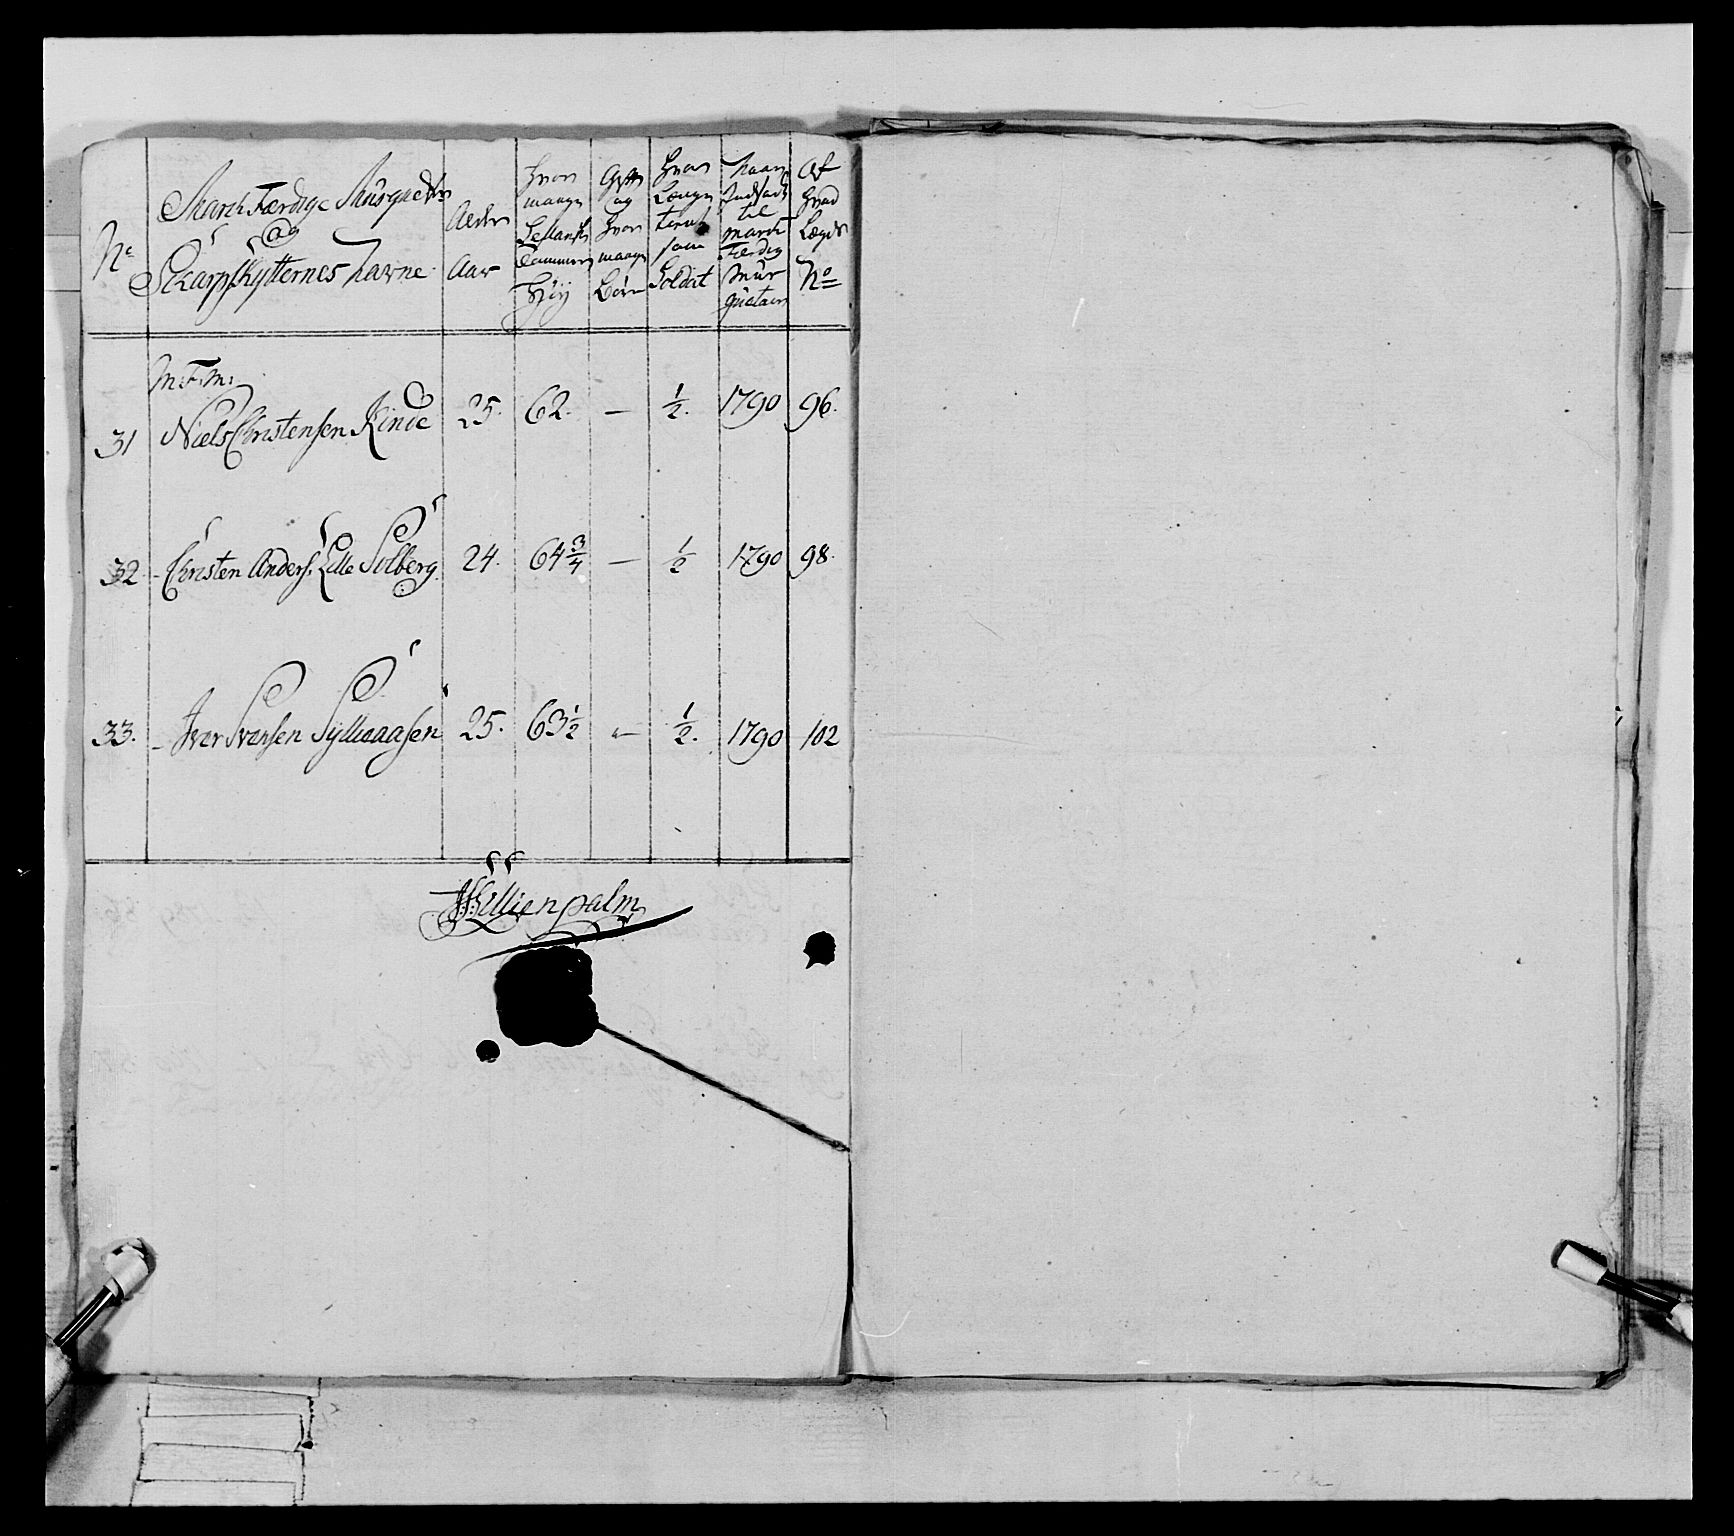 No
March Færdige Musquetr
og
Skarpskytternes Navne
Alder
Aar
Hvor
mange
Sellands
Tommer
Høy
Gift
og
Hvor
mange
Børn
Hvor
Længe
tient
som
Soldat
Naar
Indsadt
til
march
Færdig
Mus
quetair
Af
Hvad
Lægds
No
M:F:M:
31 Niels Christensen Rinde 25. 62. — 1/2. 1790 96.
32 - Christen Anders: Lille Solberg 24. 64 3/4 — 1/2 1790 98.
33. - Iver Svensen 25. 63 1/2 — 1/2. 1790 102
Lillienpalm